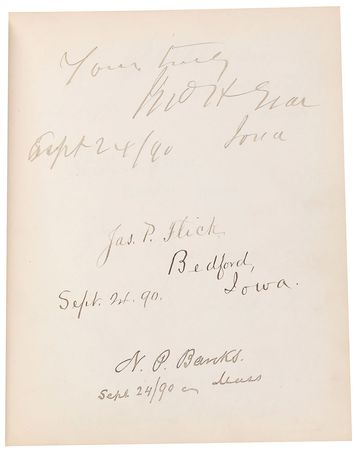 Yours truly
Jno H Gear
Sept 24/90 Iowa
Jas. P. Flick
Bedford,
Iowa.
Sept. 24. 90.
N. P. Banks.
Sept 24/90 Mass